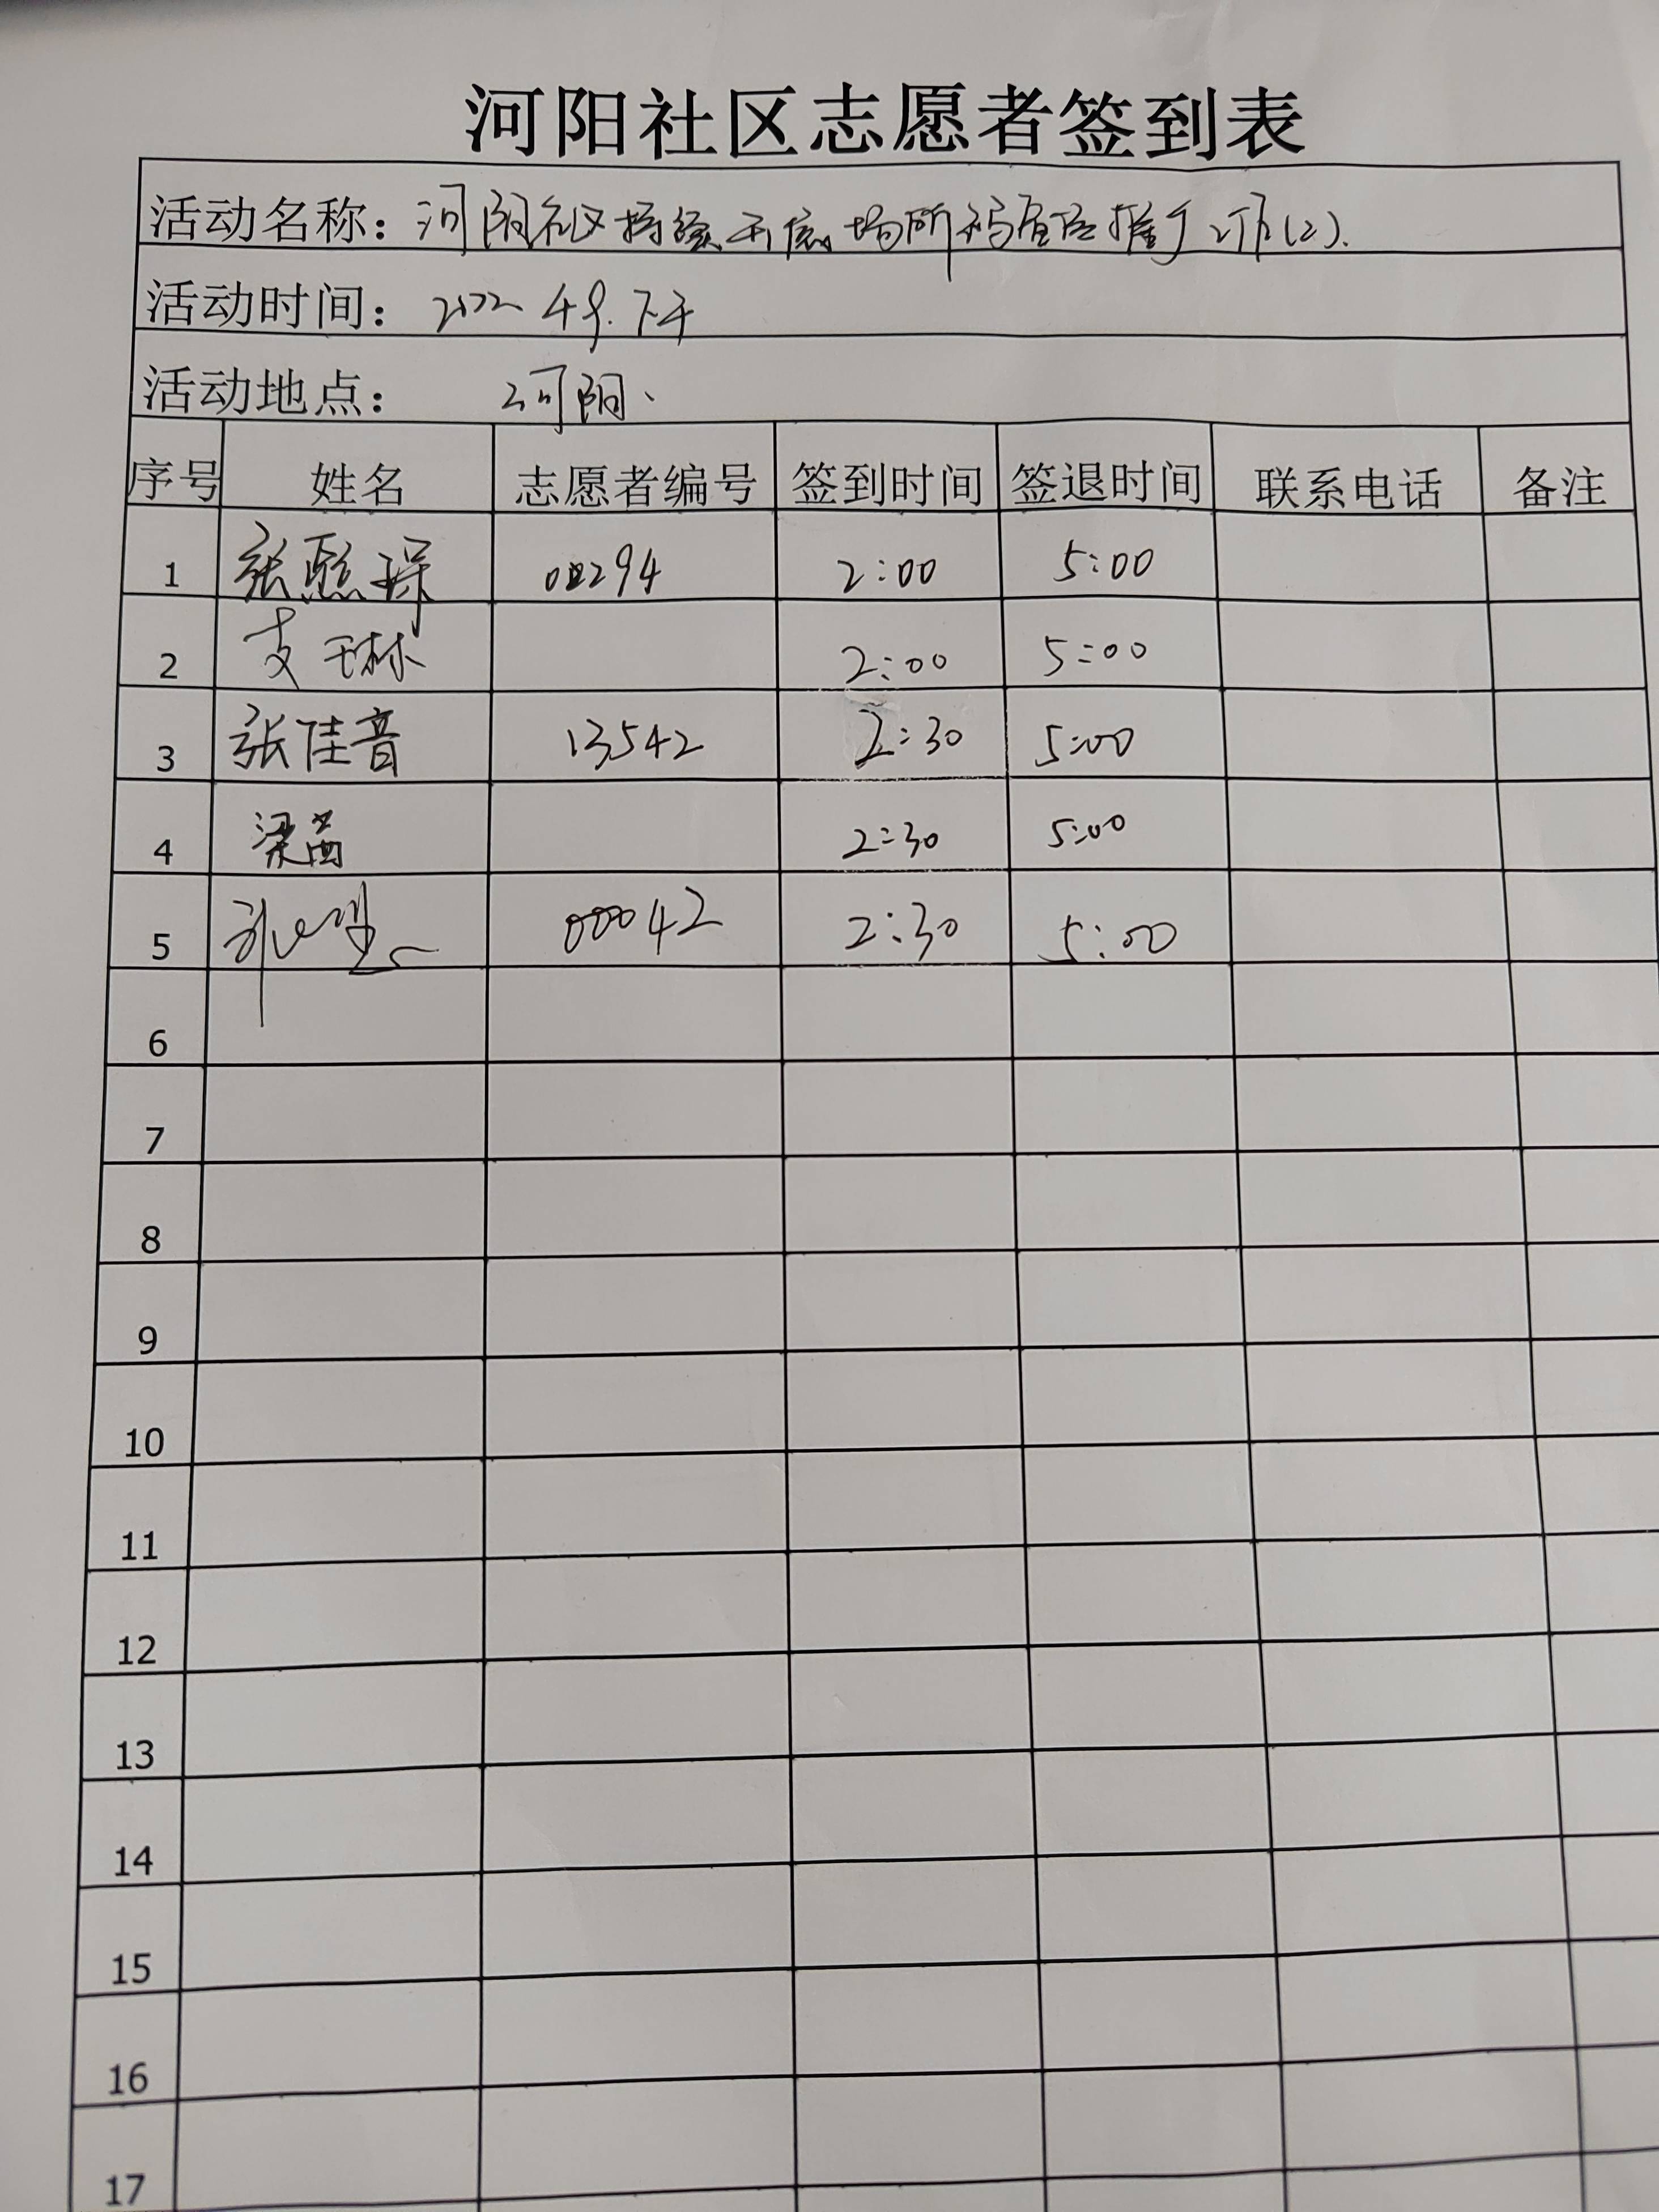 河阳社区志愿者签到表
活动名称：河阳社区持续开展场所码宣传推广工作(2).
活动时间：2022 4.9.下午
活动地点：河阳、
序号 姓名 志愿者编号 签到时间 签退时间 联系电话 备注
1 张 00294 2:00 5:00
2 支玉林 2:00 5:00
3 张佳音 13542 2:30 5:00
4 梁茜 2:30 5:00
5 00042 2:30 5:00
6
7
8
9
10
11
12
13
14
15
16
17